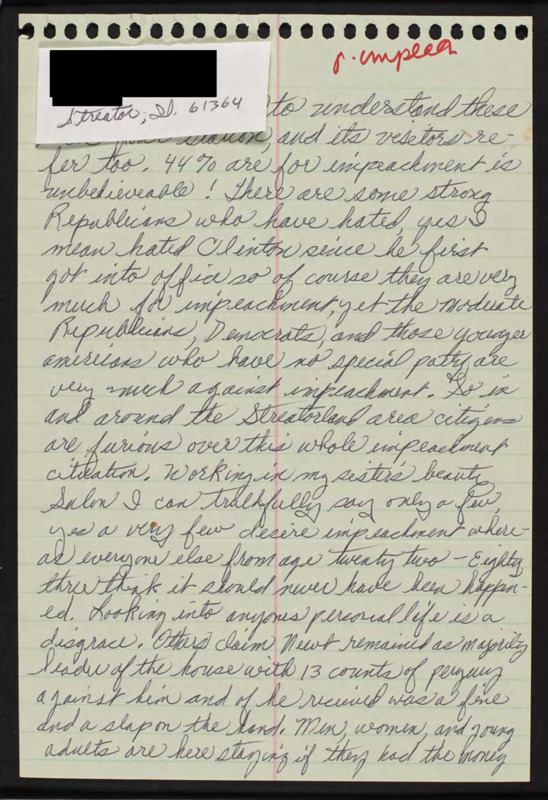 r. impeach
Streator, Il. 61364
to understand these
station, and its vesetors re-
fer too. 44% are for impeachment is
unbelieveable! There are some strong
Republicians who have hated, yes I
mean hated Clinton since he first
got into office so of course they are very
much for impeachment, yet the moderate
Republicians, Democrats, and those younger
americians who have no special paty are
very much against impeachment. So in
and around the Streatorland area citizens
are furious over this whole impeachment
citiation. Working in my sister's beauty
Salon I can truthfully say only a few,
yes a very few desire impeachment where-
as everyone else from age twenty two - Eighty
three think it should never have been happin-
ed. Looking into anyones personal life is a
disgrace. Others claim Newt remained as majority
leader of the house with 13 counts of perjury
against him and of he received was a fine
and a slap on the hand. Men, women, and young
adults are here staying if they had the money